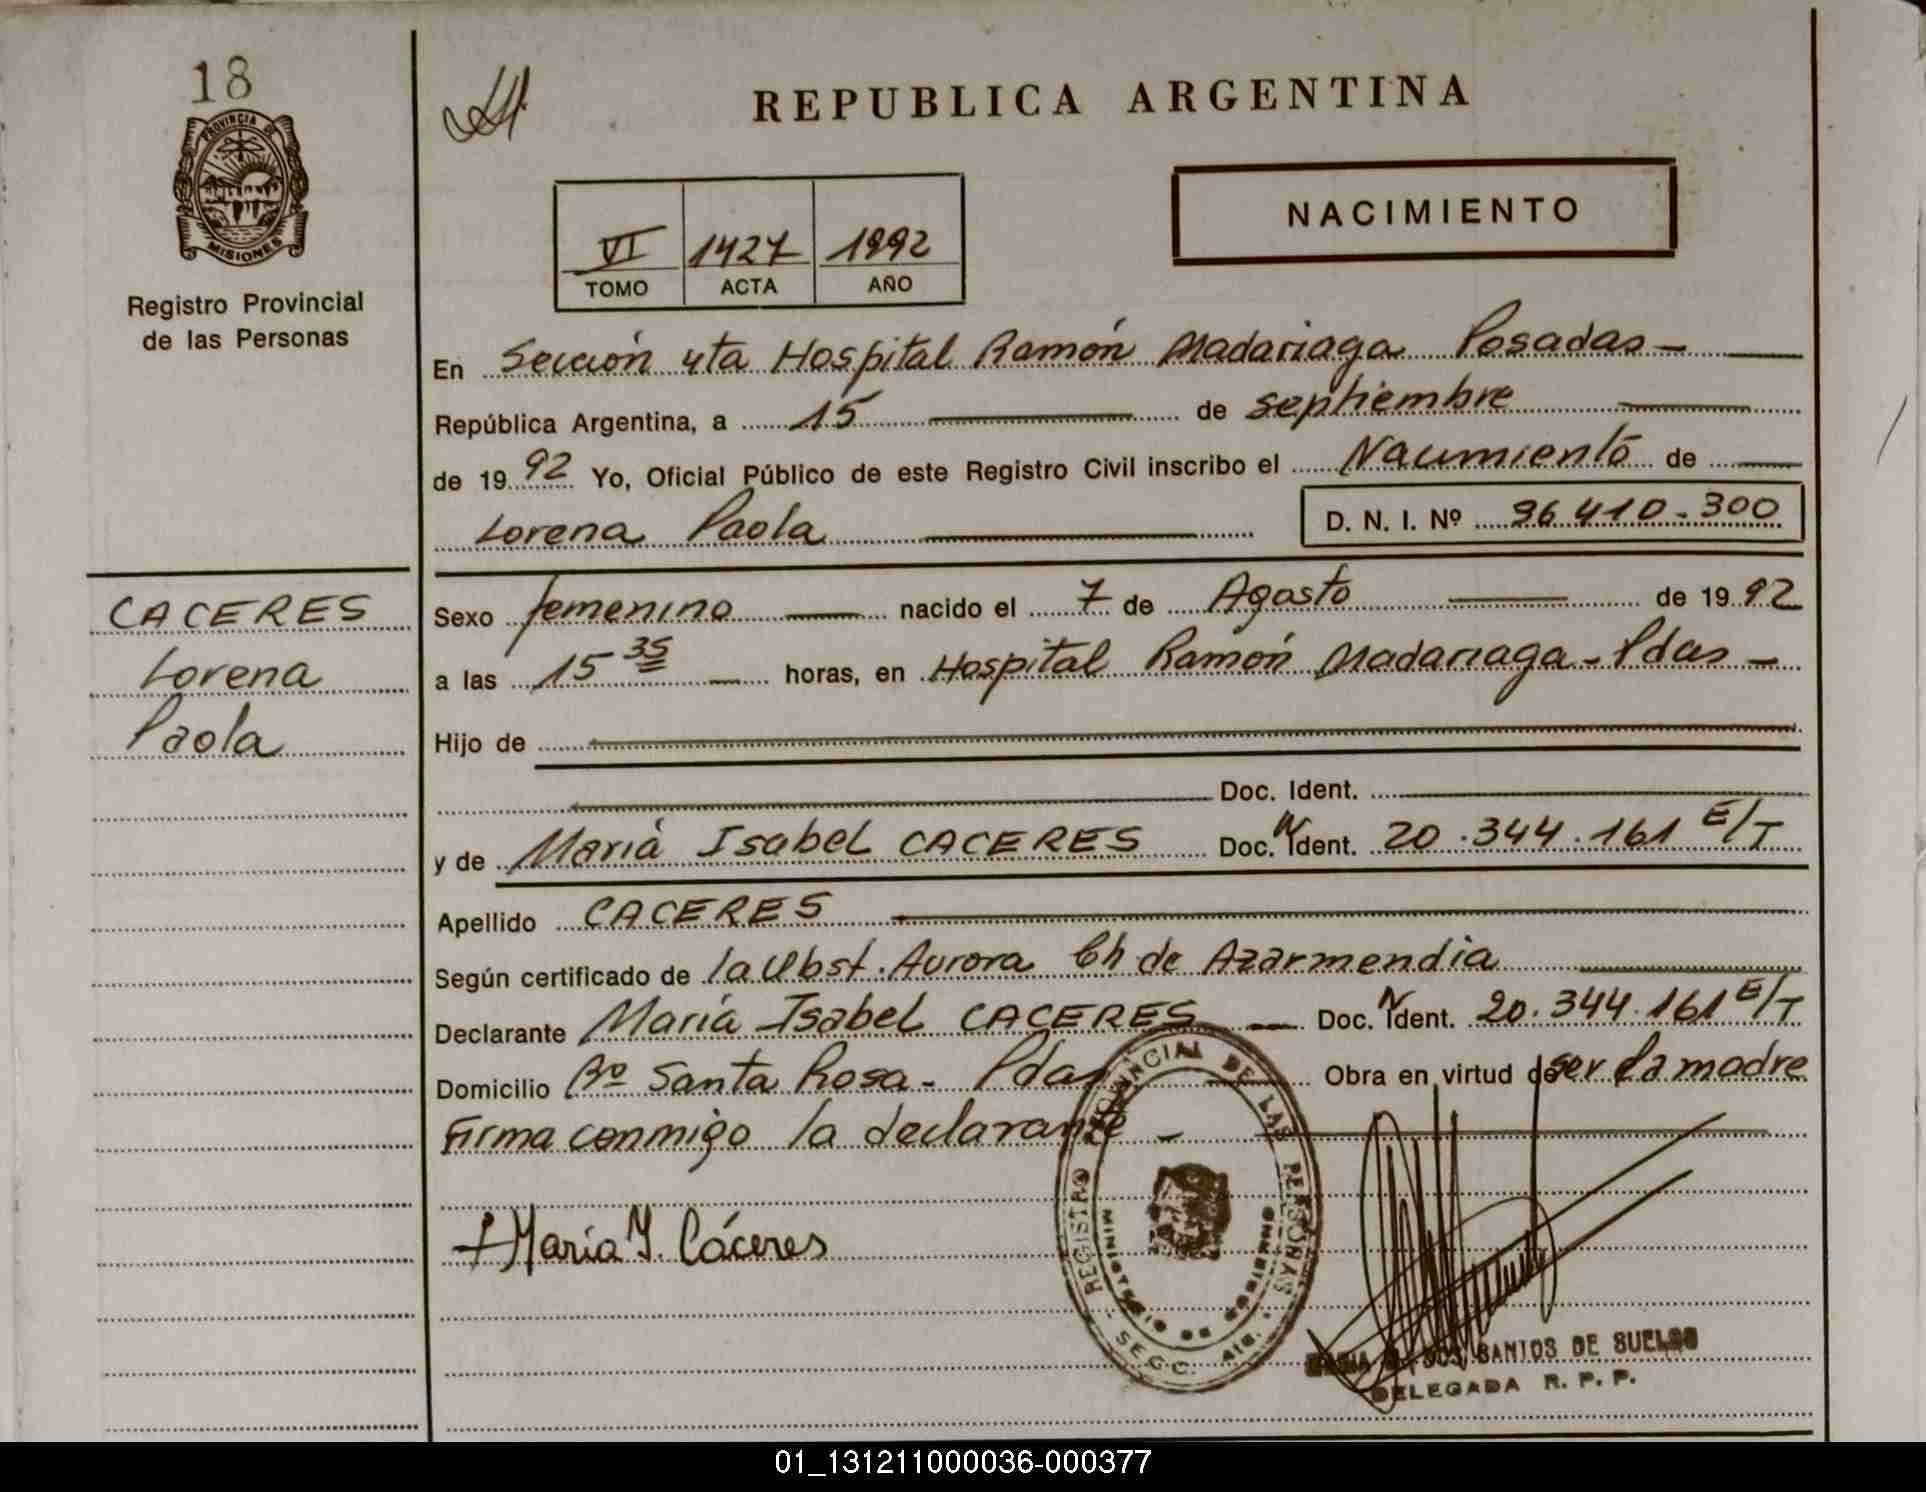 18
PROVINCIA DE
MISIONES
Registro Provincial
de las Personas
REPUBLICA ARGENTINA
VI 1427 1992
TOMO ACTA AÑO
NACIMIENTO
En Sección 4ta Hospital Ramón Madariaga Posadas
República Argentina, a 15 de septiembre
de 1992 Yo, Oficial Público de este Registro Civil inscribo el Nacimiento de
Lorena Paola D. N. I. Nº 36.410.300
CACERES
Lorena
Paola
Sexo femenino nacido el 7 de Agosto de 1992
a las 15 35 horas, en Hospital Ramón Madariaga - Pdas -
Hijo de
Doc. Ident.
y de María Isabel CACERES Doc. N Ident. 20.344.161 E/T
Apellido CACERES
Según certificado de la Obst. Aurora Ch de Azarmendia
Declarante María Isabel CACERES Doc. N Ident. 20.344.161 E/T
Domicilio Bº Santa Rosa - Pdas Obra en virtud de ser la madre
Firma conmigo la declarante -
María I. Cáceres
REGISTRO PROVINCIAL DE LAS PERSONAS
MINISTERIO DE GOBIERNO
SANTOS DE SUELDO
DELEGADA R. P. P.
01_131211000036-000377